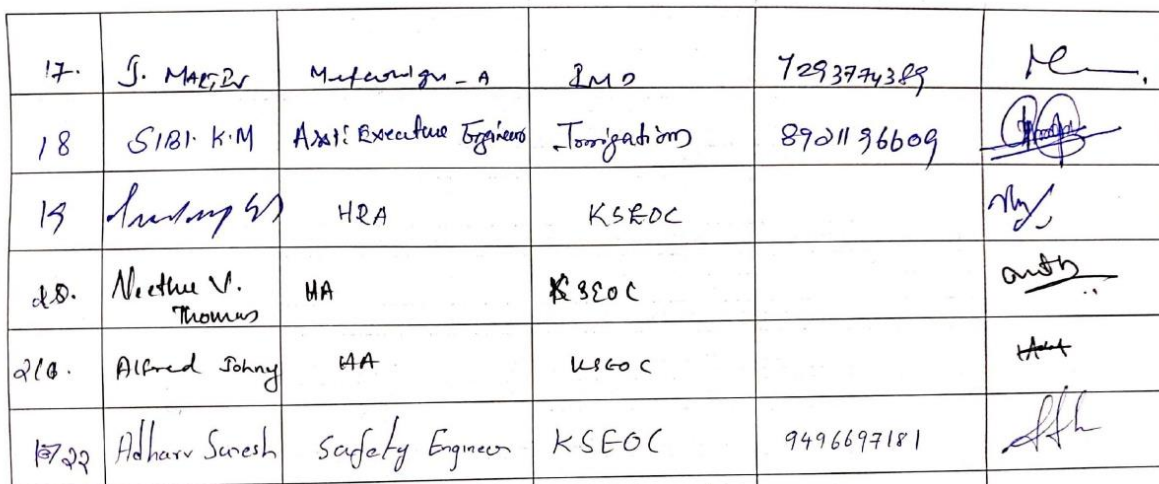 17. J. MARTIN Meteorologist - A IMD 7293774389
18 SIBI. K.M Asst: Executive Engineer Irrigation 8921196609
19 HRA KSEOC
20. Neethu V. Thomas HA KSEOC
21. Alfred Johny HA KSEOC
22 Adharv Suresh Safety Engineer KSEOC 9496697181